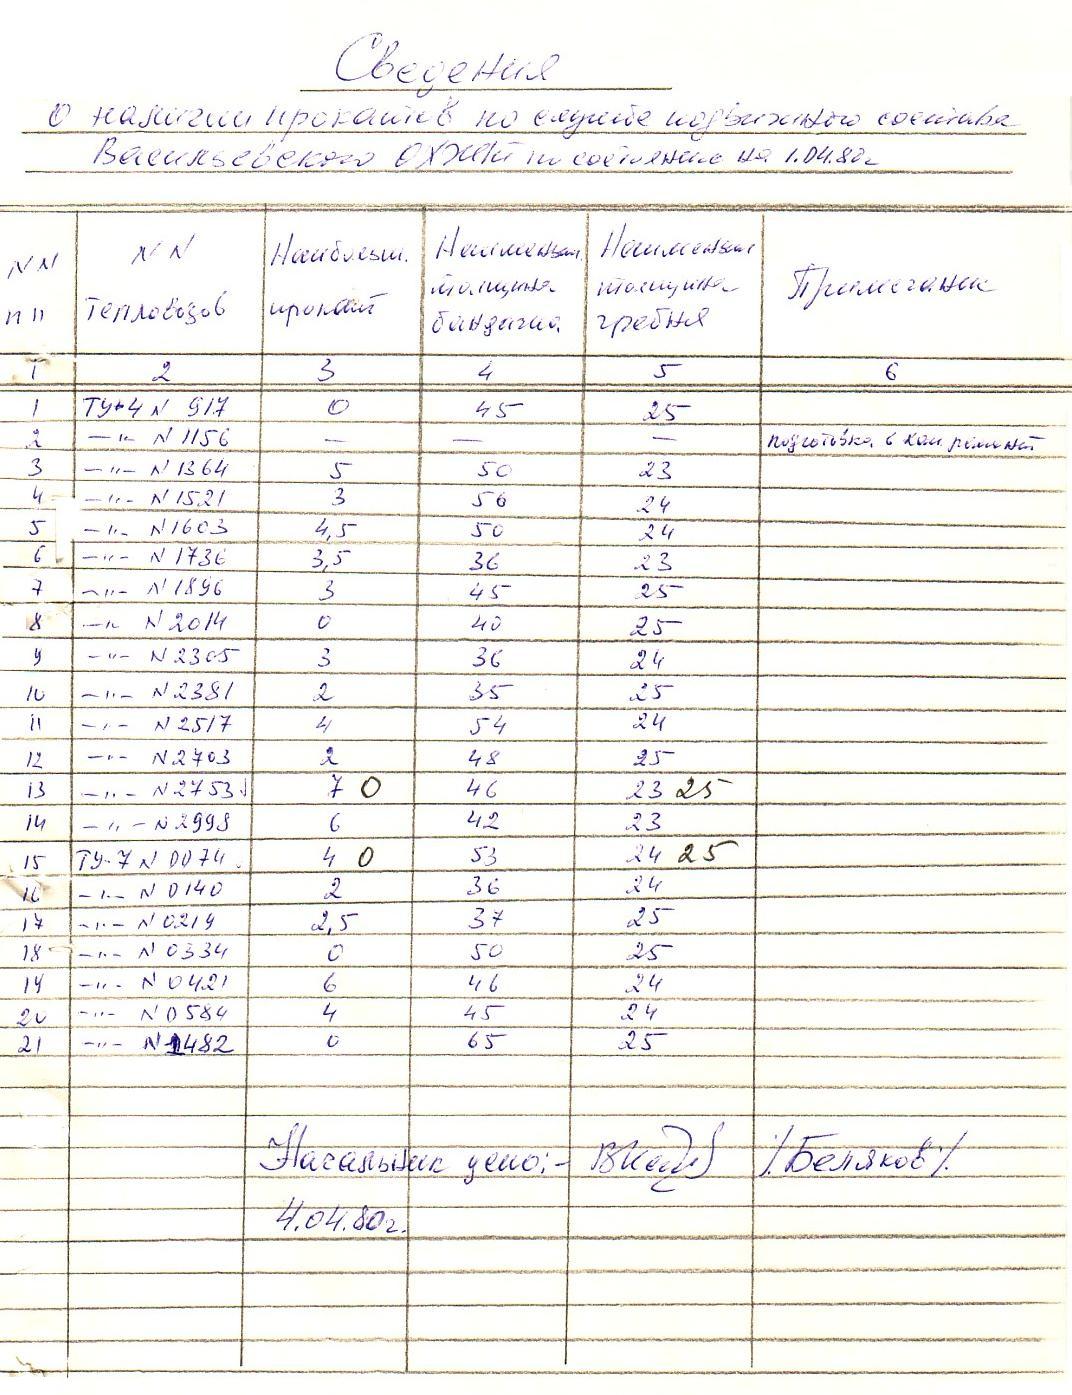 Сведения
О наличии прокатов по службе подвижного состава
Васильевского ОХЖТ по состоянию на 1.04.80г
NN пп | NN тепловозов | Наибольш. прокат | Наименьш. толщина бандажа | Наименьш толщина гребня | Примечание
1 2 3 4 5 6
1 ТУ-4 N 917 0 45 25
2 -"- N 1156 — — — подготовка в кап. ремонт
3 -"- N 1364 5 50 23
4 -"- N 1521 3 56 24
5 -"- N 1603 4,5 50 24
6 -"- N 1736 3,5 36 23
7 -"- N 1896 3 45 25
8 -"- N 2014 0 40 25
9 -"- N 2305 3 36 24
10 -"- N 2381 2 35 25
11 -"- N 2517 4 54 24
12 -"- N 2703 2 48 25
13 -"- N 2753 7 0 46 23 25
14 -"- N 2998 6 42 23
15 ТУ-7 N 0074 4 0 53 24 25
16 -"- N 0140 2 36 24
17 -"- N 0219 2,5 37 25
18 -"- N 0334 0 50 25
19 -"- N 0421 6 46 24
20 -"- N 0584 4 45 24
21 -"- N 1482 0 65 25
Начальник депо:- /Беляков/.
4.04.80г.